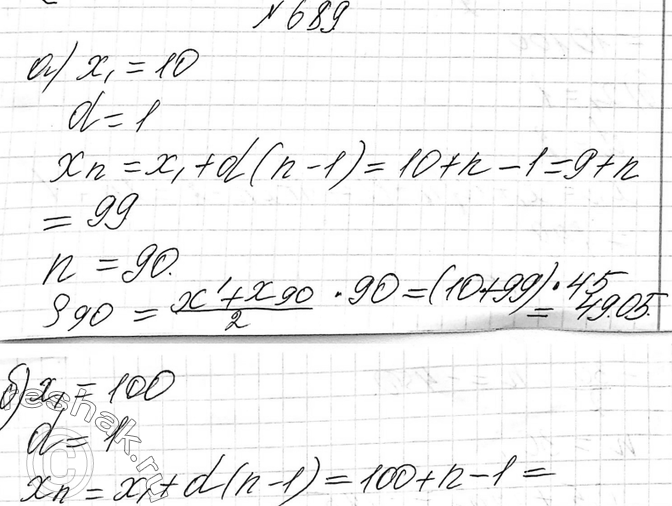 №689
а) x₁ = 10
d = 1
xn = x₁ + d(n-1) = 10+n-1 = 9+n
= 99
n = 90.
S90 = (x₁ + x90)/2 · 90 = (10+99) · 45 = 4905.
б) x₁ = 100
d = 1
xn = x₁ + d(n-1) = 100+n-1 =
reshak.ru